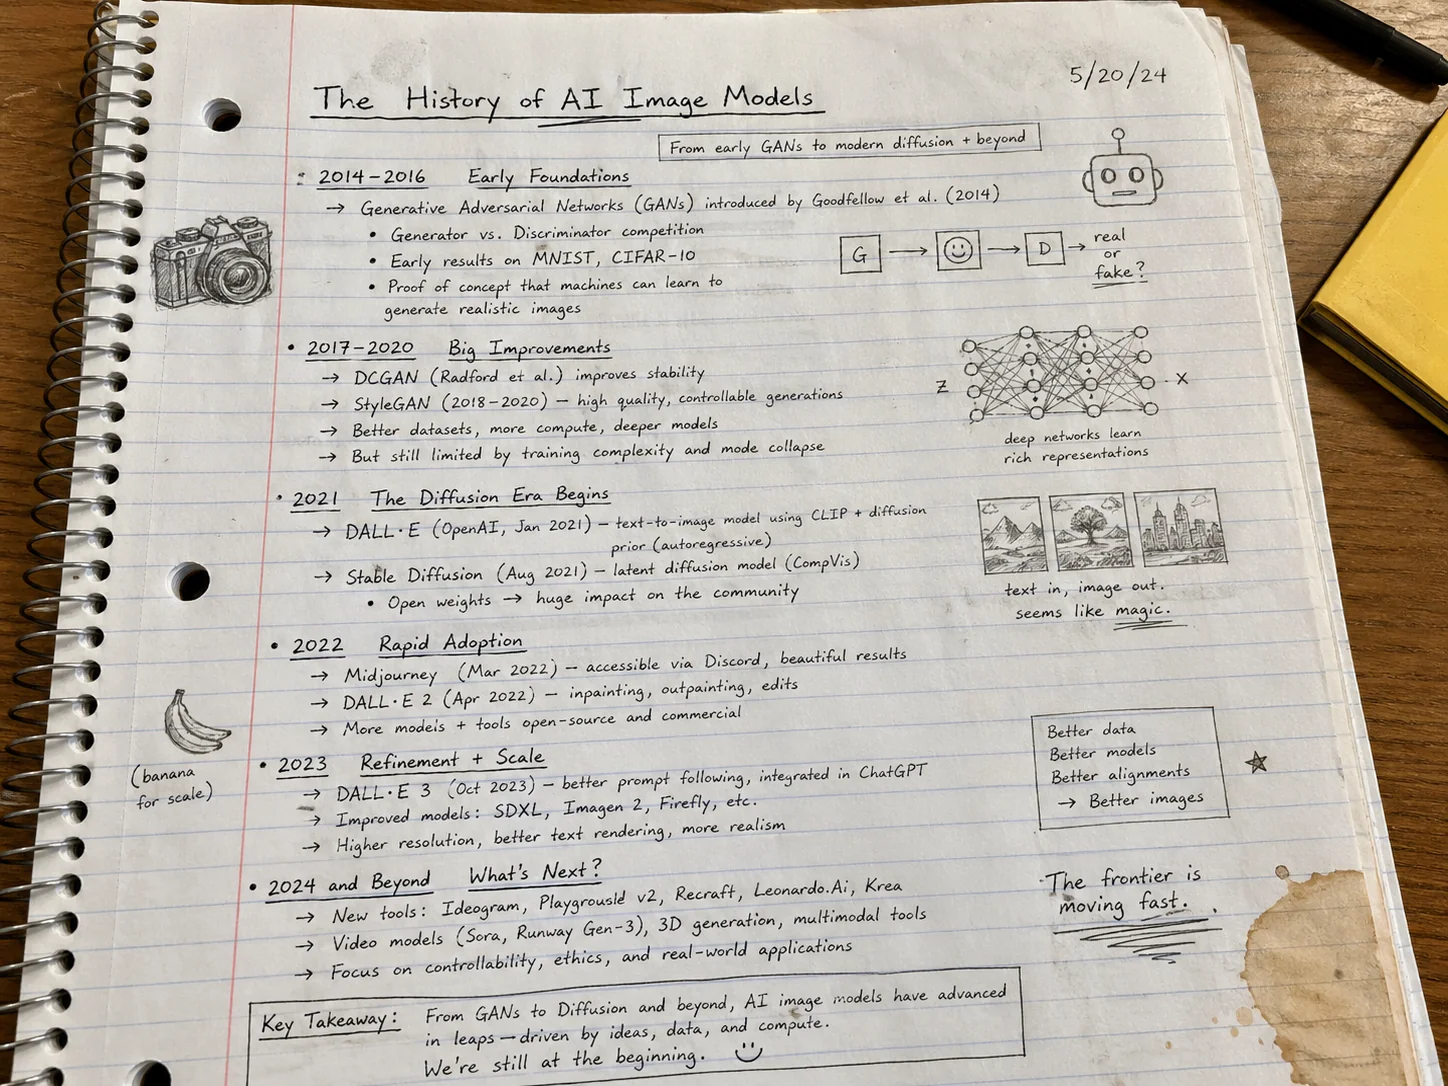 5/20/24
The History of AI Image Models
From early GANs to modern diffusion + beyond
2014-2016 Early Foundations
→ Generative Adversarial Networks (GANs) introduced by Goodfellow et al. (2014)
• Generator vs. Discriminator competition
• Early results on MNIST, CIFAR-10
• Proof of concept that machines can learn to
generate realistic images
G → → D → real
or
fake?
• 2017-2020 Big Improvements
→ DCGAN (Radford et al.) improves stability
→ StyleGAN (2018-2020) — high quality, controllable generations
→ Better datasets, more compute, deeper models
→ But still limited by training complexity and mode collapse
Z X
deep networks learn
rich representations
• 2021 The Diffusion Era Begins
→ DALL·E (OpenAI, Jan 2021) — text-to-image model using CLIP + diffusion
prior (autoregressive)
→ Stable Diffusion (Aug 2021) — latent diffusion model (CompVis)
• Open weights → huge impact on the community
text in, image out.
seems like magic.
• 2022 Rapid Adoption
→ Midjourney (Mar 2022) — accessible via Discord, beautiful results
→ DALL·E 2 (Apr 2022) — inpainting, outpainting, edits
→ More models + tools open-source and commercial
(banana
for scale)
• 2023 Refinement + Scale
→ DALL·E 3 (Oct 2023) — better prompt following, integrated in ChatGPT
→ Improved models: SDXL, Imagen 2, Firefly, etc.
→ Higher resolution, better text rendering, more realism
Better data
Better models
Better alignments
→ Better images
• 2024 and Beyond What's Next?
→ New tools: Ideogram, v2, Recraft, Leonardo.Ai, Krea
→ Video models (Sora, Runway Gen-3), 3D generation, multimodal tools
→ Focus on controllability, ethics, and real-world applications
The frontier is
moving fast.
Key Takeaway: From GANs to Diffusion and beyond, AI image models have advanced
in leaps — driven by ideas, data, and compute.
We're still at the beginning.